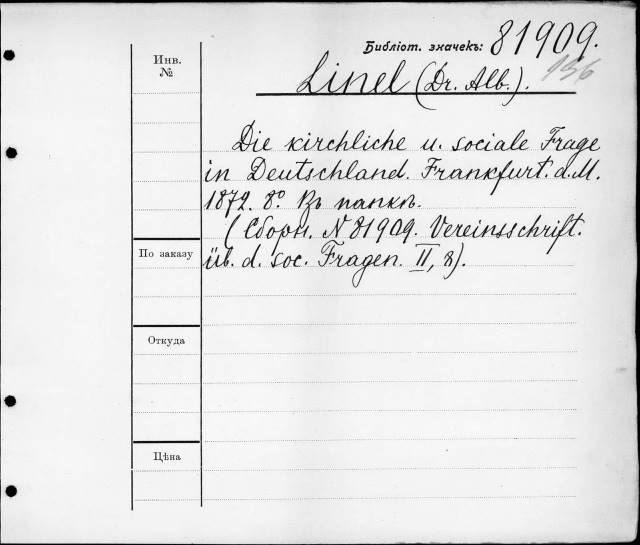 Библіот. значекъ: 81909.
Инв.
№
Linel (Dr. Alb.).
Die kirchliche u. sociale Frage
in Deutschland. Frankfurt. a. M.
1872. 8° Въ папкѣ.
(Сборн. N 81909. Vereinsschrift.
üb. d. soc. Fragen. II, 8).
По заказу
Откуда
Цѣна